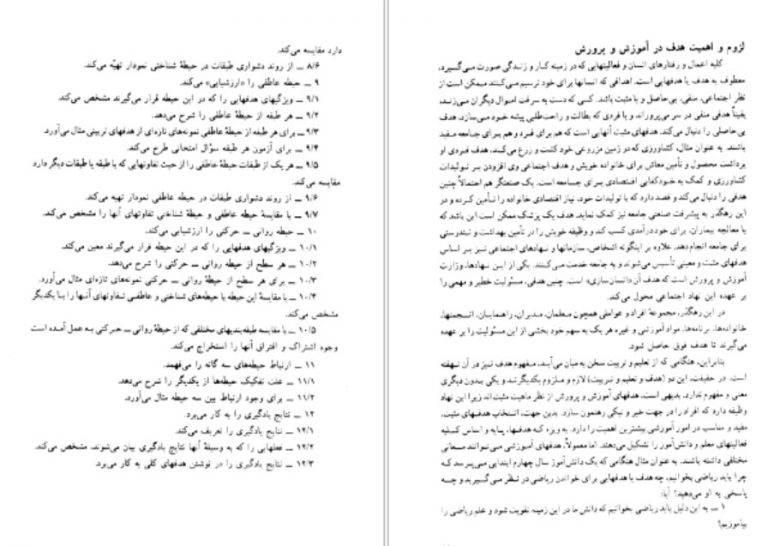 لزوم و اهمیت هدف در آموزش و پرورش
کلیه اعمال و رفتارهای انسان و فعالیتهایی که در زمینه کار و زندگی صورت می‌گیرد،
معطوف به هدف یا هدفهایی است. اهدافی که انسانها برای خود ترسیم می‌کنند ممکن است از
نظر اجتماعی، منفی، بی‌حاصل و یا مثبت باشد. کسی که دست به سرقت اموال دیگران می‌زند،
یقیناً هدفی منفی در سر می‌پروراند و یا فردی که بطالت و راحت‌طلبی پیشه خود می‌سازد، هدف
بی‌حاصلی را دنبال می‌کند. هدفهای مثبت آنهایی است که هم برای فرد و هم برای جامعه مفید
باشند. به عنوان مثال، کشاورزی که در زمین مزروعی خود کشت و زرع می‌کند، هدف فردی او
برداشت محصول و تأمین معاش برای خانواده خویش و هدف اجتماعی وی افزودن بر تولیدات
کشاورزی و کمک به خودکفایی اقتصادی برای جامعه است. یک صنعتگر هم احتمالاً چنین
هدفی را دنبال می‌کند و قصد دارد که با تولیدات خود، نیاز اقتصادی خانواده را تأمین کرده و در
این رهگذر به پیشرفت صنعتی جامعه نیز کمک نماید. هدف یک پزشک ممکن است این باشد که
با معالجه بیماران، برای خود درآمدی کسب کند و وظیفه خویش را در تأمین بهداشت و تندرستی
برای جامعه انجام دهد. علاوه بر اینگونه اشخاص، سازمانها و نهادهای اجتماعی نیز بر اساس
هدفهای مثبت و معینی تأسیس می‌شوند و به جامعه خدمت می‌کنند. یکی از این نهادها، وزارت
آموزش و پرورش است که هدف آن «انسان‌سازی» است. چنین هدفی، مسئولیت خطیر و مهمی را
بر عهده این نهاد اجتماعی محول می‌کند.
در این رهگذر، مجموعهٔ افراد و عواملی همچون معلمان، مدیران، راهنمایان، انجمنها،
خانواده‌ها، برنامه‌ها، مواد آموزشی و غیره هر یک به سهم خود بخشی از این مسئولیت را بر عهده
می‌گیرند تا هدف فوق حاصل شود.
بنابراین، هنگامی که از تعلیم و تربیت سخن به میان می‌آید، مفهوم هدف نیز در آن نهفته
است. در حقیقت، این دو (هدف و تعلیم و تربیت) لازم و ملزوم یکدیگرند و یکی بدون دیگری
معنی و مفهوم ندارد. بدیهی است، هدفهای آموزش و پرورش از نظر ماهیت مثبت‌اند زیرا این نهاد
وظیفه دارد که افراد را در جهت خیر و نیکی رهنمون سازد. بدین جهت، انتخاب هدفهای مثبت،
مفید و مناسب در امور آموزشی بیشترین اهمیت را دارد. به ویژه که هدفها، پایه و اساس کلیه
فعالیتهای معلم و دانش‌آموز را تشکیل می‌دهند. اما معمولاً، هدفهای آموزشی می‌توانند معانی
مختلفی داشته باشند. به عنوان مثال هنگامی که یک دانش‌آموز سال چهارم ابتدایی می‌پرسد که
چرا باید ریاضی بخوانیم، چه هدف یا هدفهایی برای خواندن ریاضی در نظر می‌گیرید و چه
پاسخی به او می‌دهید؟ آیا:
۱ ـ به این دلیل باید ریاضی بخوانیم که دانش ما در این زمینه تقویت شود و علم ریاضی را
بیاموزیم؟
دارد مقایسه می‌کند.
۸/۶ ـ از روند دشواری طبقات در حیطهٔ شناختی نمودار تهیّه می‌کند.
۹ ـ حیطه عاطفی را «ارزشیابی» می‌کند.
۹/۱ ـ ویژگیهای هدفهایی را که در این حیطه قرار می‌گیرند مشخص می‌کند.
۹/۲ ـ هر طبقه از حیطهٔ عاطفی را شرح می‌دهد.
۹/۳ ـ برای هر طبقه از حیطهٔ عاطفی نمونه‌های تازه‌ای از هدفهای تربیتی مثال می‌آورد.
۹/۴ ـ برای آزمون هر طبقه سؤال امتحانی طرح می‌کند.
۹/۵ ـ هر یک از طبقات حیطهٔ عاطفی را از حیث تفاوتهایی که با طبقه یا طبقات دیگر دارد
مقایسه می‌کند.
۹/۶ ـ از روند دشواری طبقات در حیطه عاطفی نمودار تهیه می‌کند.
۹/۷ ـ با مقایسهٔ حیطه عاطفی و حیطهٔ شناختی تفاوتهای آنها را مشخص می‌کند.
۱۰ ـ حیطه روانی ـ حرکتی را ارزشیابی می‌کند.
۱۰/۱ ـ ویژگیهای هدفهایی را که در این حیطه قرار می‌گیرند معین می‌کند.
۱۰/۲ ـ هر سطح از حیطه روانی ـ حرکتی را شرح می‌دهد.
۱۰/۳ ـ برای هر سطح از حیطه روانی ـ حرکتی نمونه‌های تازه‌ای مثال می‌آورد.
۱۰/۴ ـ با مقایسهٔ این حیطه با حیطه‌های شناختی و عاطفی تفاوتهای آنها را با یکدیگر
مشخص می‌کند.
۱۰/۵ ـ با مقایسه طبقه‌بندیهای مختلفی که از حیطهٔ روانی ـ حرکتی به عمل آمده است
وجوه اشتراک و افتراق آنها را استخراج می‌کند.
۱۱ ـ ارتباط حیطه‌های سه گانه را می‌فهمد.
۱۱/۱ ـ علت تفکیک حیطه‌ها از یکدیگر را شرح می‌دهد.
۱۱/۲ ـ برای وجود ارتباط بین سه حیطه مثال می‌آورد.
۱۲ ـ نتایج یادگیری را به کار می‌برد.
۱۲/۱ ـ نتایج یادگیری را تعریف می‌کند.
۱۲/۲ ـ فعلهایی را که به وسیلهٔ آنها نتایج یادگیری بیان می‌شوند، مشخص می‌کند.
۱۲/۳ ـ نتایج یادگیری را در نوشتن هدفهای کلی به کار می‌برد.